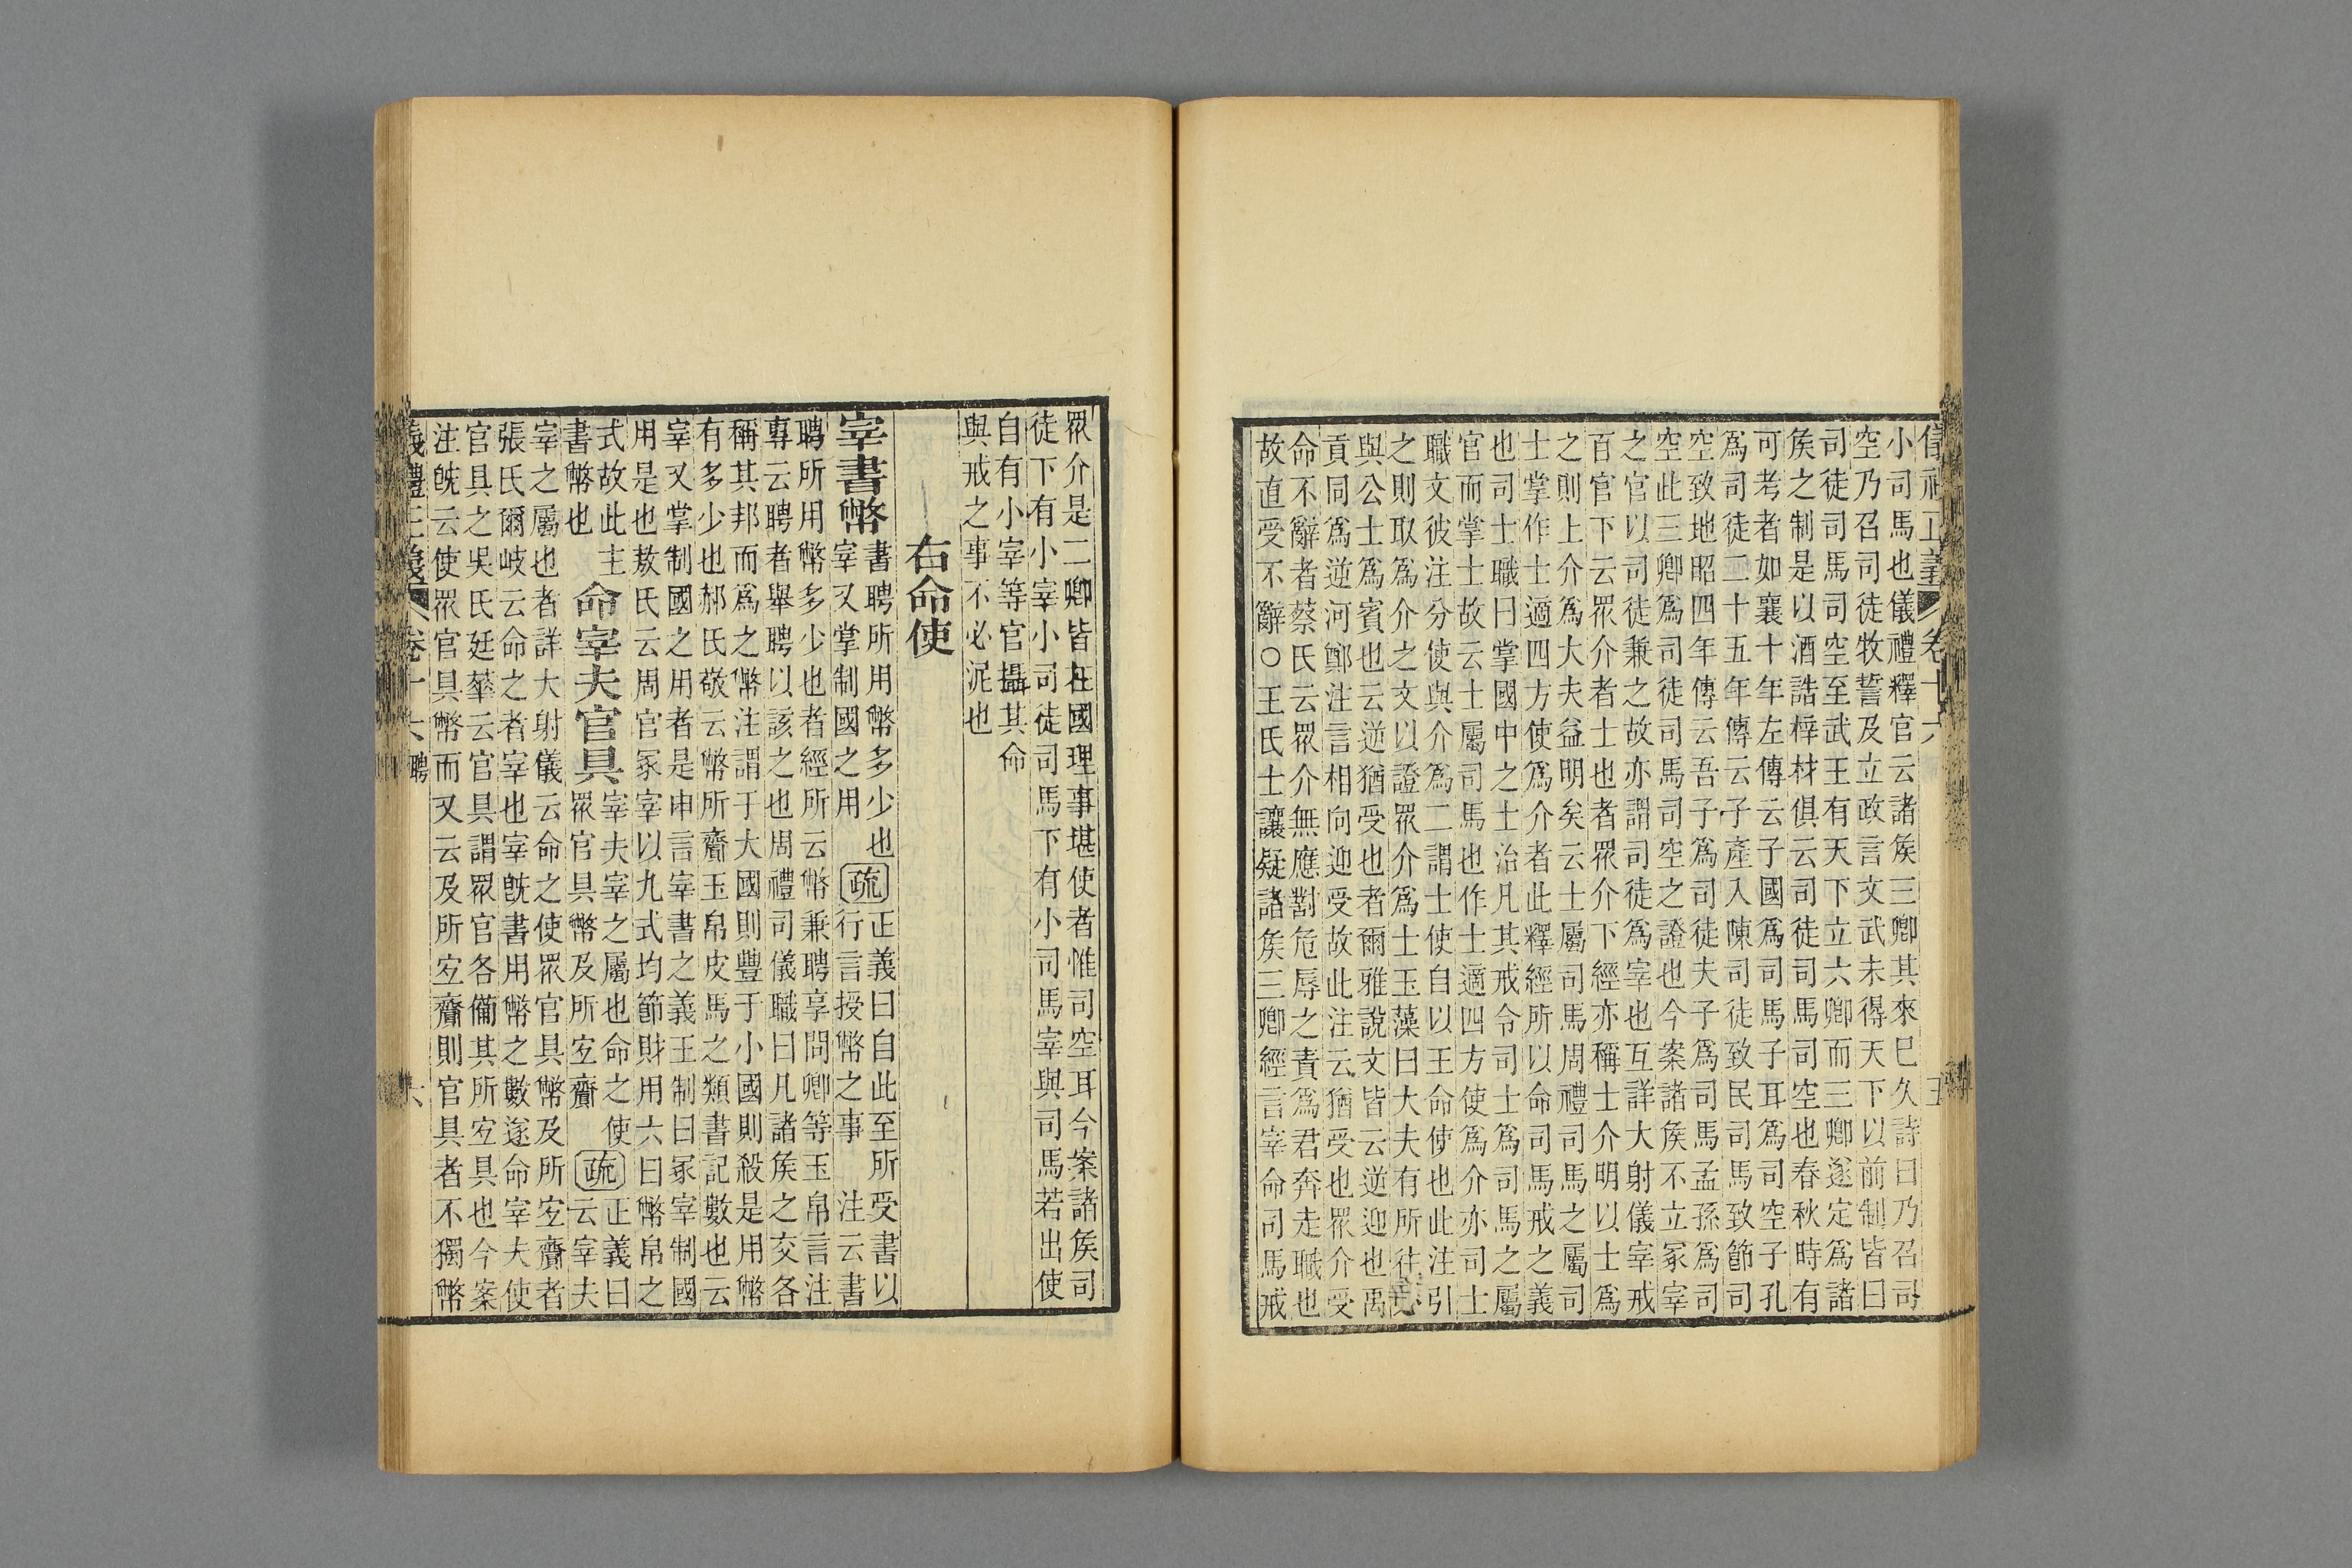 小司馬也儀禮釋官云諸矦三卿其來巳久詩曰乃召司
空乃召司徒牧誓及立政言文武未得天下以前制皆曰
司徒司馬司空至武王有天下立六卿而三卿遂定爲諸
矦之制是以酒誥梓材俱云司徒司馬司空也春秋時有
可考者如襄十年左傳云子國爲司馬子耳爲司空子孔
爲司徒二十五年傳云子產入陳司徒致民司馬致節司
空致地昭四年傳云吾子爲司徒夫子爲司馬孟孫爲司
空此三卿爲司徒司馬司空之證也今案諸矦不立冢宰
之官以司徒兼之故亦謂司徒爲宰也互詳大射儀宰戒
百官下云眾介者士也者眾介下經亦稱士介明以士爲
之則上介爲大夫益明矣云士屬司馬周禮司馬之屬司
士掌作士適四方使爲介者此釋經所以命司馬戒之義
也司士職曰掌國中之士治凡其戒令司士爲司馬之屬
官而掌士故云士屬司馬也作士適四方使爲介亦司士
職文彼注分使與介爲二謂士使自以王命使也此注引
之則取爲介之文以證眾介爲士玉藻曰大夫有所往必
與公士爲賓也云逆猶受也者爾雅說文皆云逆迎也禹
貢同爲逆河鄭注言相向迎受故此注云猶受也眾介受
命不辭者蔡氏云眾介無應對危辱之責爲君奔走職也
故直受不辭○王氏士讓疑諸矦三卿經言宰命司馬戒
眾介是二卿皆在國理事堪使者惟司空耳今案諸矦司
徒下有小宰小司徒司馬下有小司馬宰與司馬若出使
自有小宰等官攝其命
與戒之事不必泥也
右命使
宰書幣書聘所用幣多少也宰又掌制國之用疏正義曰自此至所受書以行言授幣之事 注云書
聘所用幣多少也者經所云幣兼聘享問卿等玉帛言注
專云聘者舉聘以該之也周禮司儀職曰凡諸矦之交各
稱其邦而爲之幣注謂于大國則豐于小國則殺是用幣
有多少也郝氏敬云幣所齎玉帛皮馬之類書記數也云
宰又掌制國之用者是申言宰書之義王制曰冢宰制國
用是也敖氏云周官冢宰以九式均節財用六曰幣帛之
式故此主
書幣也命宰夫官具宰夫宰之屬也命之使眾官具幣及所宐齎疏正義曰云宰夫
宰之屬也者詳大射儀云命之使眾官具幣及所宐齎者
張氏爾岐云命之者宰也宰旣書用幣之數遂命宰夫使
官具之吳氏廷華云官具謂眾官各備其所宐具也今案
注旣云使眾官具幣而又云及所宐齎則官具者不獨幣